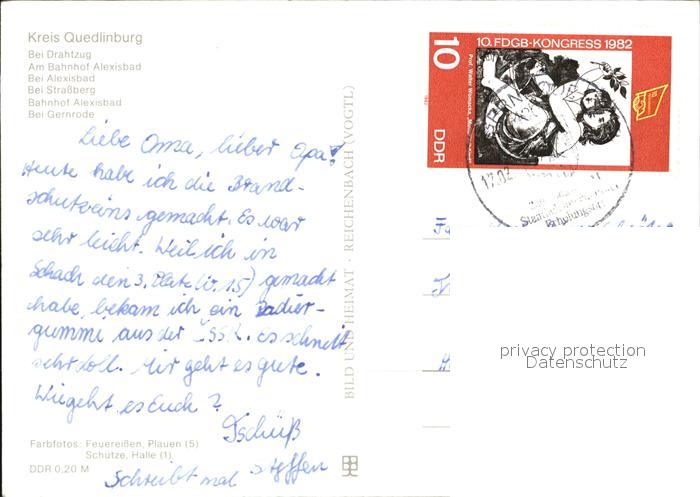 Kreis Quedlinburg
Bei Drahtzug
Am Bahnhof Alexisbad
Bei Alexisbad
Bei Straßberg
Bahnhof Alexisbad
Bei Gernrode
Liebe Oma, lieber Opa!
Heute habe ich die Brand-
schutz gemacht. Es war
sehr leicht. Weil ich in
Schach den 3. Platz gemacht
habe, bekam ich ein Radier-
gummi aus der ČSSR. es schneit
sehr toll. Mir geht es gute.
Wie geht es Euch?
Tschüß
Steffen
Schreibt mal
Farbfotos: Feuereißen, Plauen (5)
Schütze, Halle (1)
DDR 0,20 M
BILD UND HEIMAT · REICHENBACH (VOGTL)
10. FDGB-KONGRESS 1982
10
DDR
Prof. Walter Womacka
1982
17.02
Erholungsort
privacy protection
Datenschutz